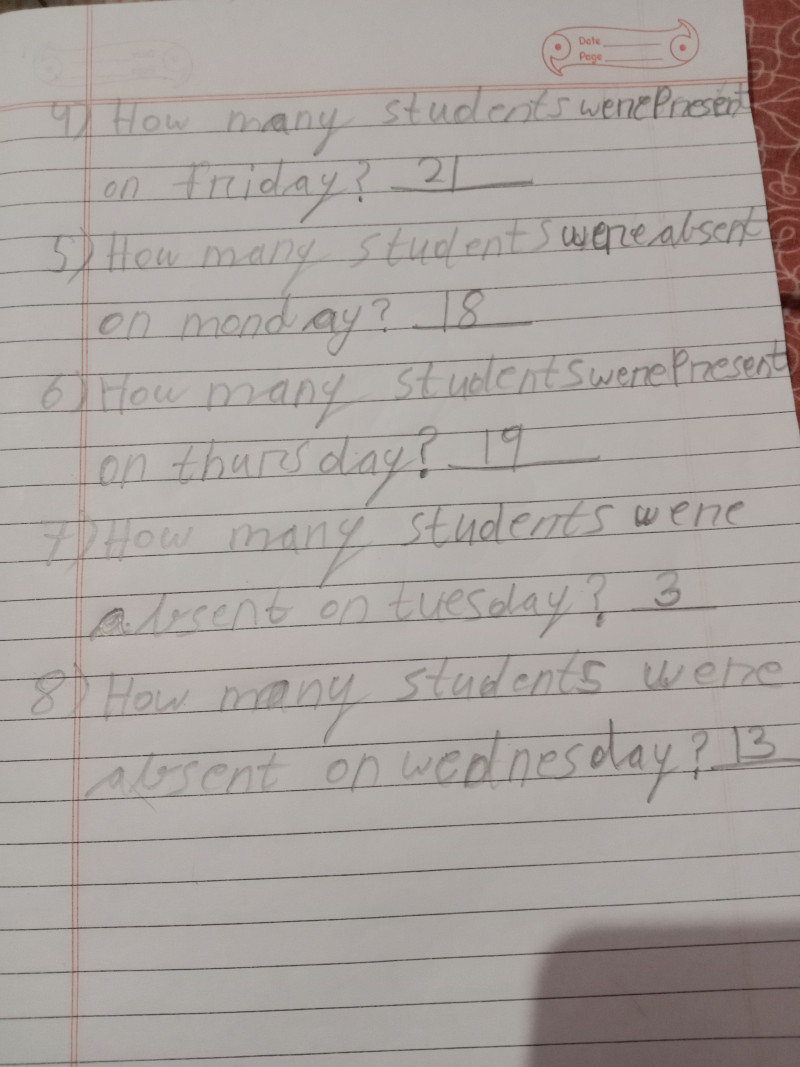 Date
Page
4) How many students were Present
on friday? 21
5) How many students were absent
on monday? 18
6) How many students were Present
on thursday? 19
7) How many students were
absent on tuesday? 3
8) How many students were
absent on wednesday? 13